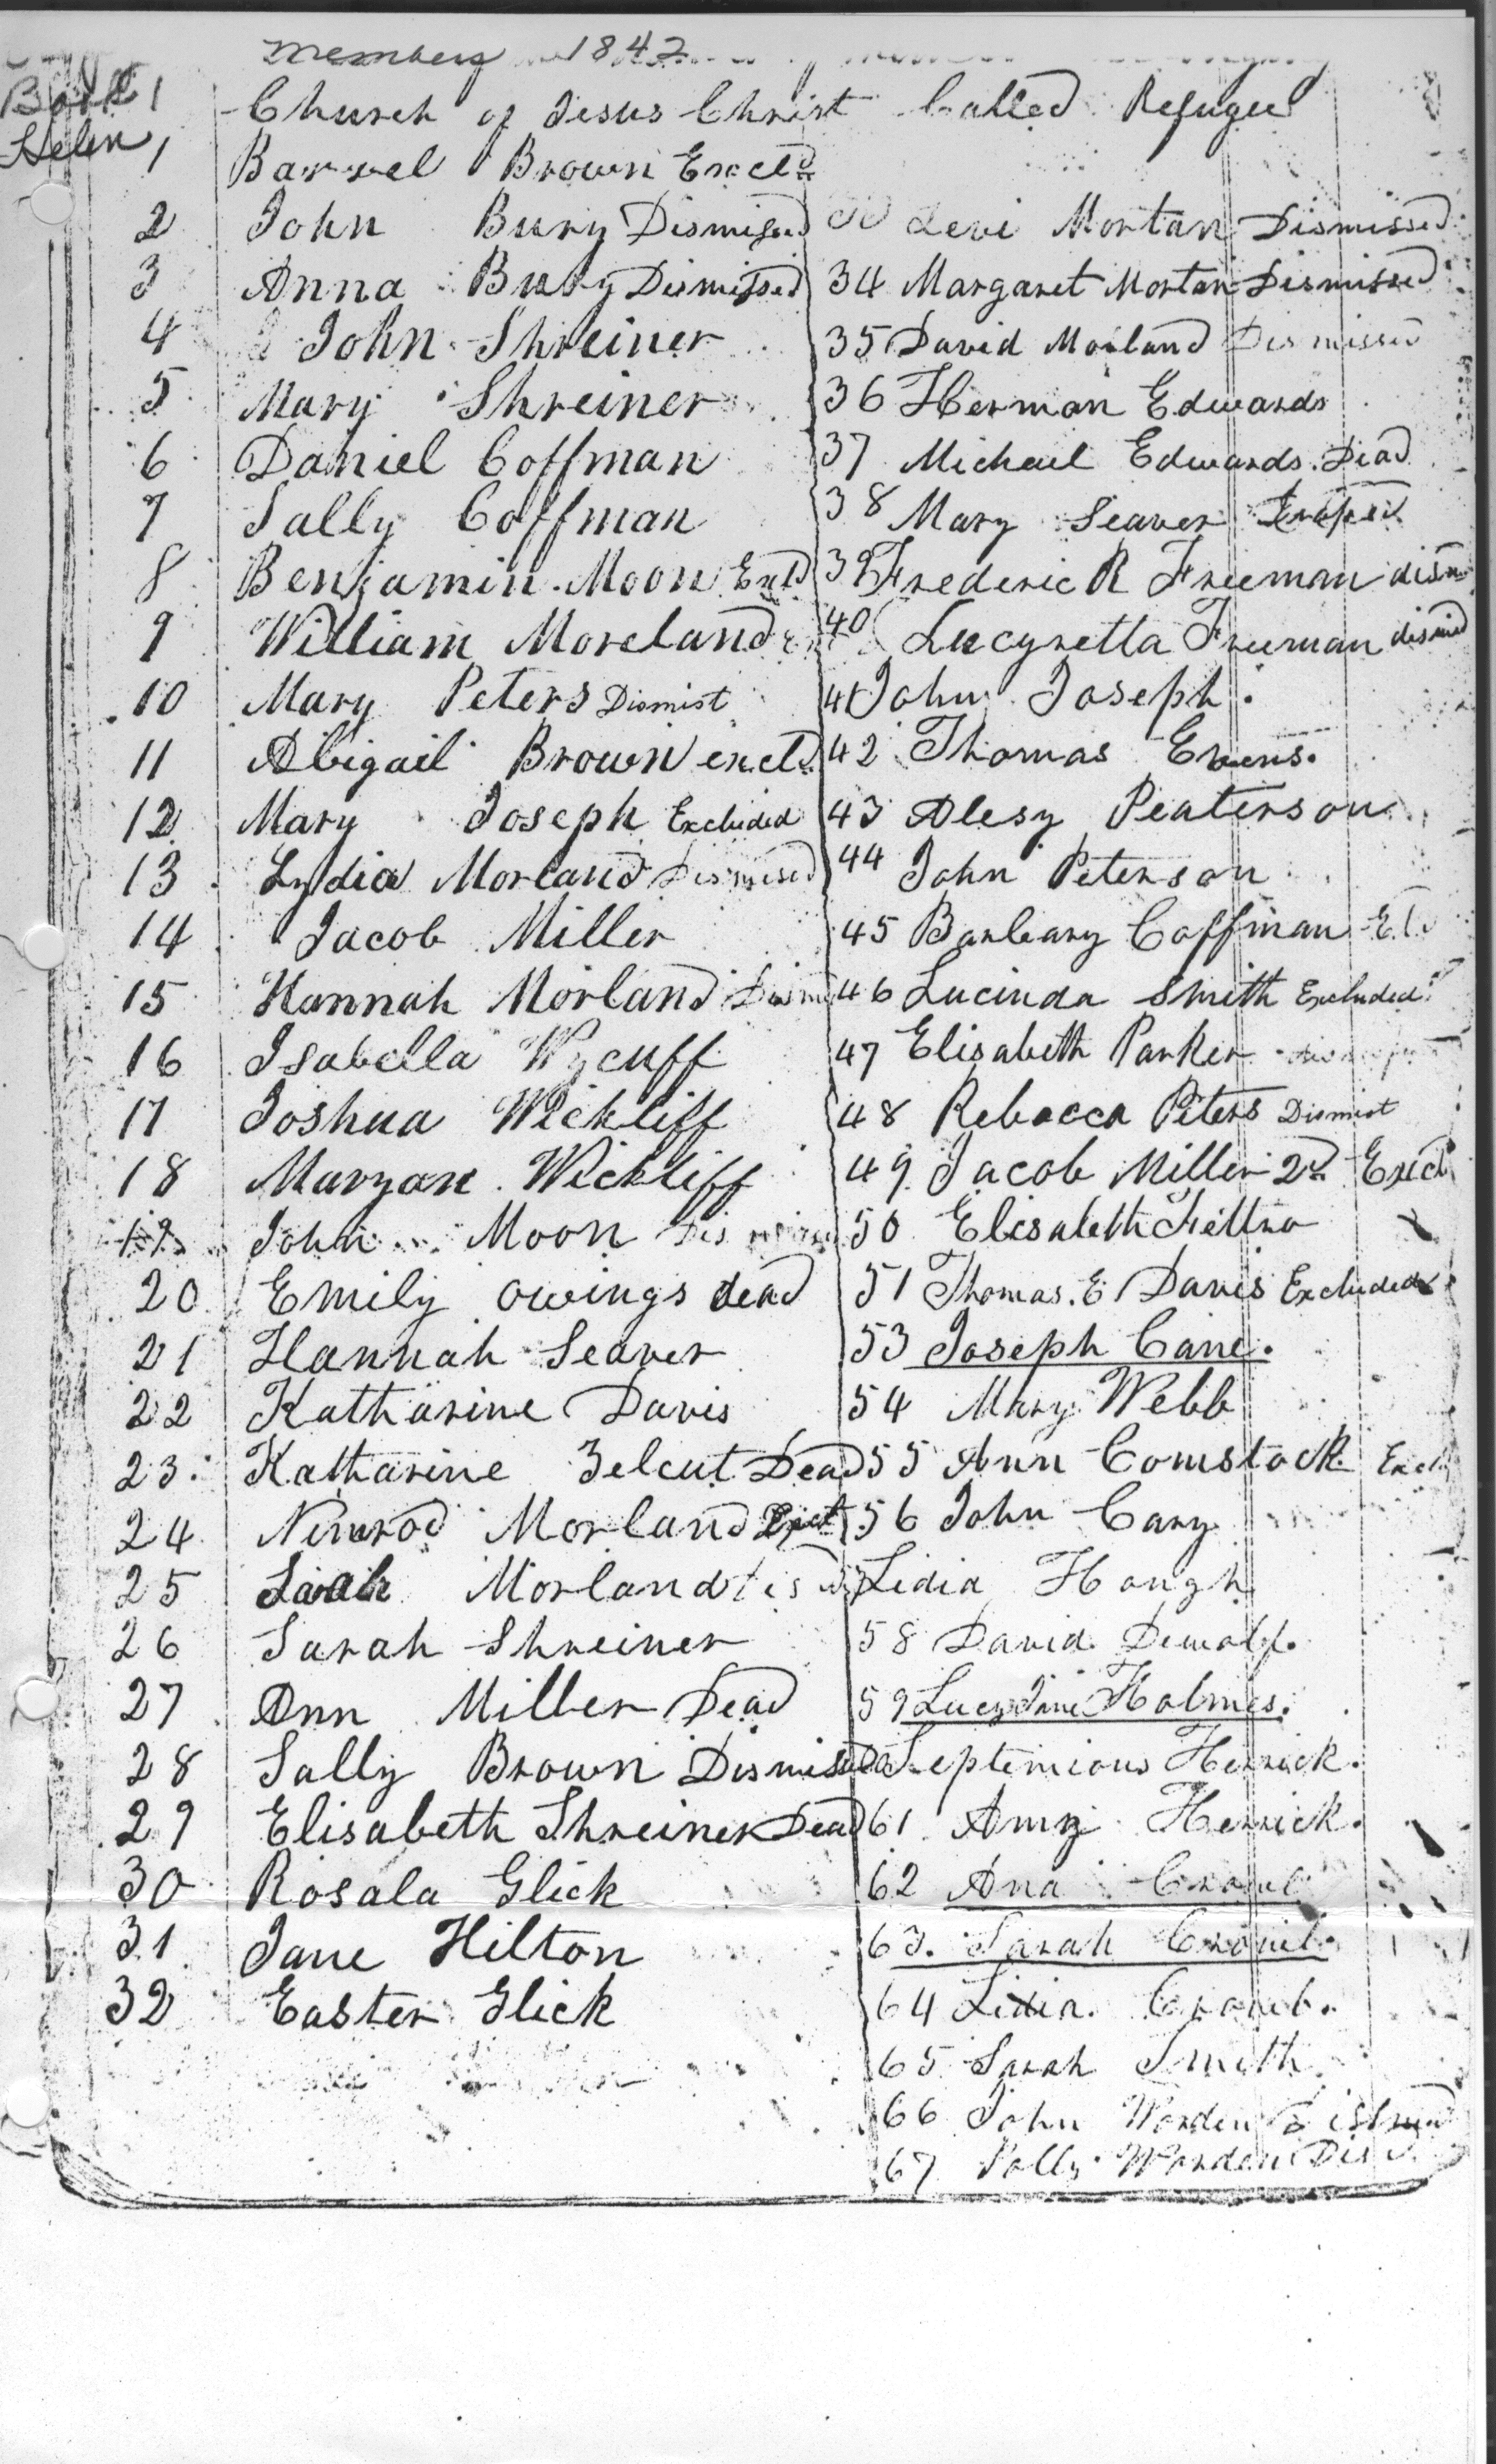 Members 1842
Book 1
Helen
Church of Jesus Christ Called Refugee
1 Barwel Brown Excld
2 John Bury Dismissed
3 Anna Bury Dismissed
4 John Shreiner
5 Mary Shreiner
6 Daniel Coffman
7 Sally Coffman
8 Benjamin Moon Exld
9 William Moreland
10 Mary Peters Dismist
11 Abigail Brown excld
12 Mary Joseph Excluded
13 Lydia Morland Dismised
14 Jacob Miller
15 Hannah Morland
16 Isabella Wycuff
17 Joshua Wickliff
18 Maryan Wickliff
19 John Moon
20 Emily Owings dead
21 Hannah Seaver
22 Katharine Davis
23 Katharine Zelcut Dead
24 Nimrod Morland
25 Sarah Morland
26 Sarah Shreiner
27 Ann Miller Dead
28 Sally Brown Dismissed
29 Elisabeth Shreiner Dead
30 Rosala Glick
31 Jane Hilton
32 Easter Glick
Levi Mortan Dismissed
34 Margaret Mortan Dismissed
35 David Morland Dismissed
36 Herman Edwards
37 Michael Edwards Dead
38 Mary Seaver
39 Frederic R Freeman dism
40 Lucyretta Freeman dismied
41 John Joseph.
42 Thomas Evens.
43 Alesy Peaterson
44 John Peterson
45 Barbary Coffman
46 Lucinda Smith Excluded
47 Elisabeth Parker
48 Rebacca Peters Dismist
49 Jacob Miller 2d Excd
50 Elisabeth
51 Thomas. E Davis Excluded
53 Joseph Cane.
54 Mary Webb
55 Ann Comstock
56 John Cary
Lidia Hough
58 David Dewolf.
59 Lucy Jane Holmes.
Septemious Herrick.
61 Amy Herrick.
62 Ana
63. Sarah
64 Lidia.
65 Sarah Smith
66 John Worden
67 Polly Worden